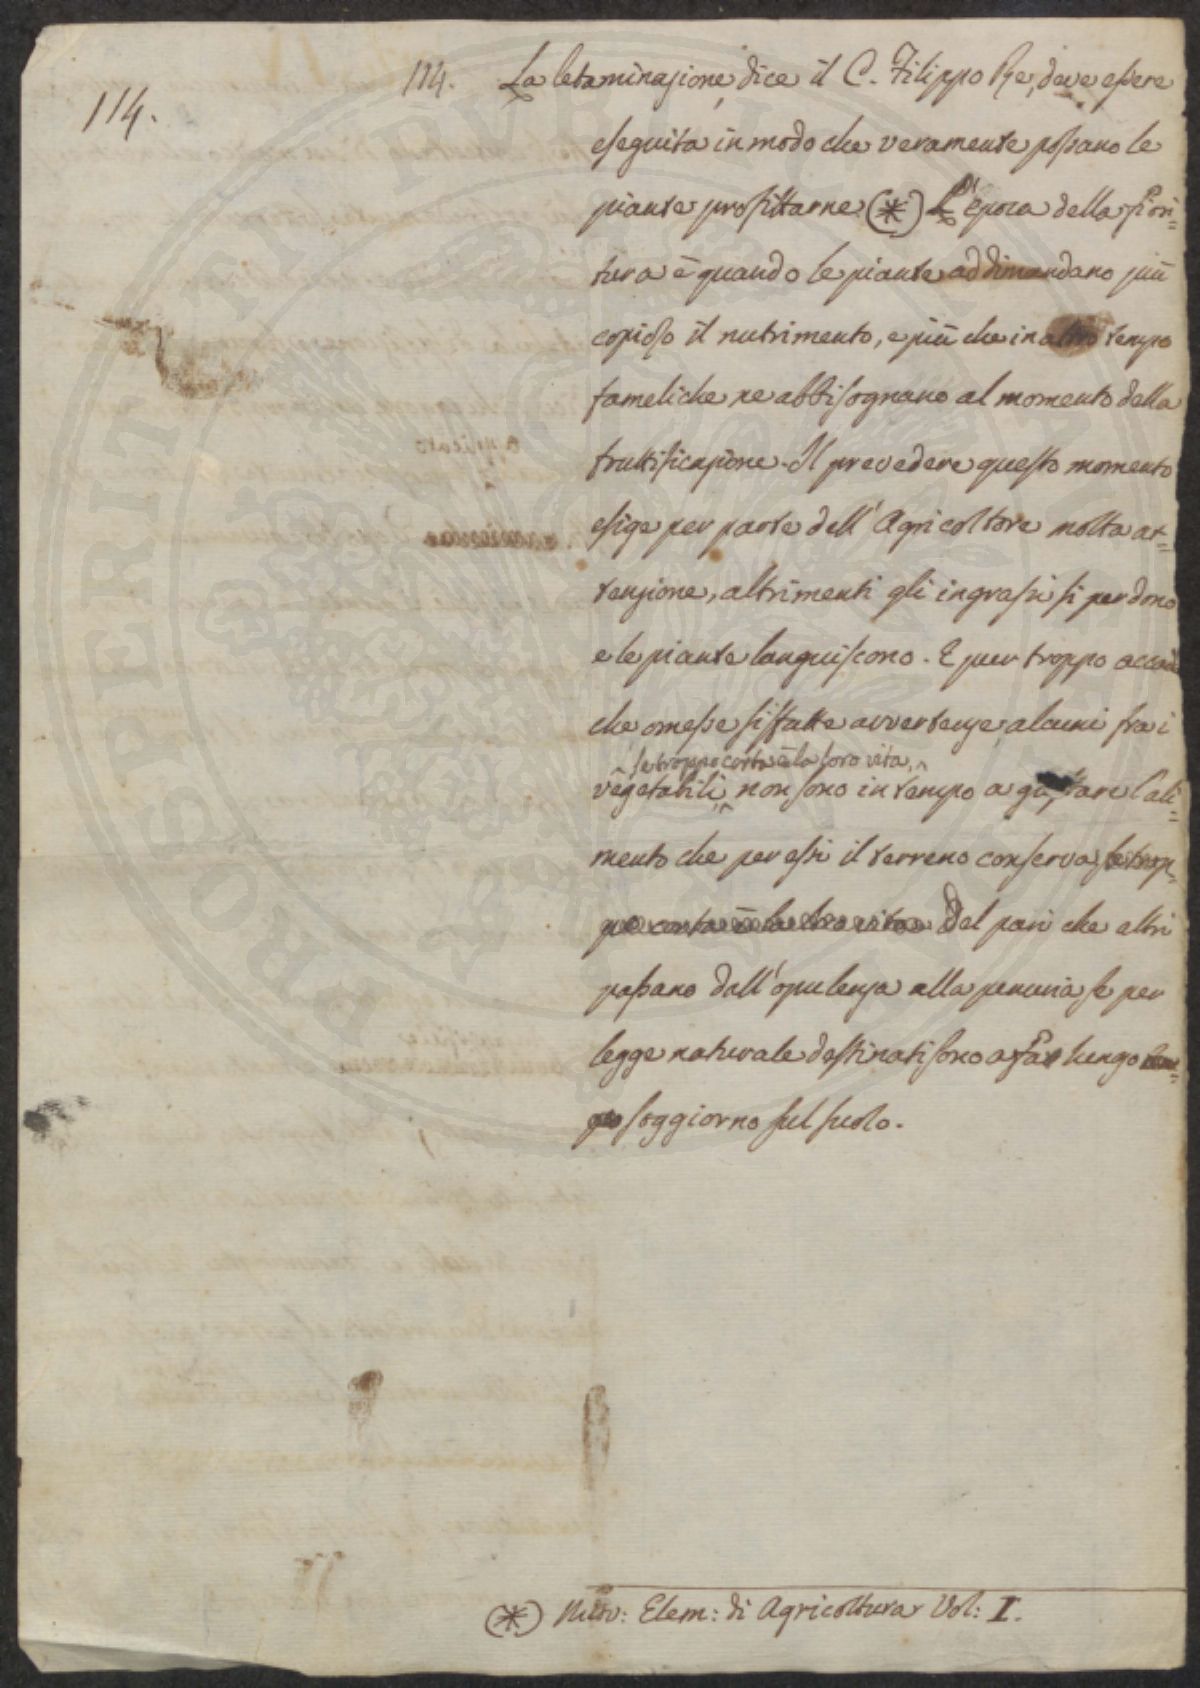 114.
114. La letaminazione, dice il C. Filippo Re, deve essere
eseguita in modo che veramente possano le
piante profittarne (*) L'epoca della fiori=
tura è quando le piante addimandano più
copioso il nutrimento, e più che in altro tempo
fameliche ne abbisognano al momento della
fruttificazione. Il prevedere questo momento
esige per parte dell'Agricoltore molta at=
tenzione, altrimenti gli ingrassi si perdono
e le piante languiscono. E pur troppo accade
che omesse siffatte avvertenze, alcuni fra i
se troppo corta è la loro vita,
vegetabili, non sono in tempo a gustare l'ali=
mento che per essi il terreno conserva, se trop=
po corta è la loro vita Del pari che altri
passano dall'opulenza alla penuria se per
legge naturale destinati sono a far lungo
soggiorno sul suolo.
(*) Nuov: Elem: di Agricoltura Vol: I.
PROSPERITATI PVBLICAE